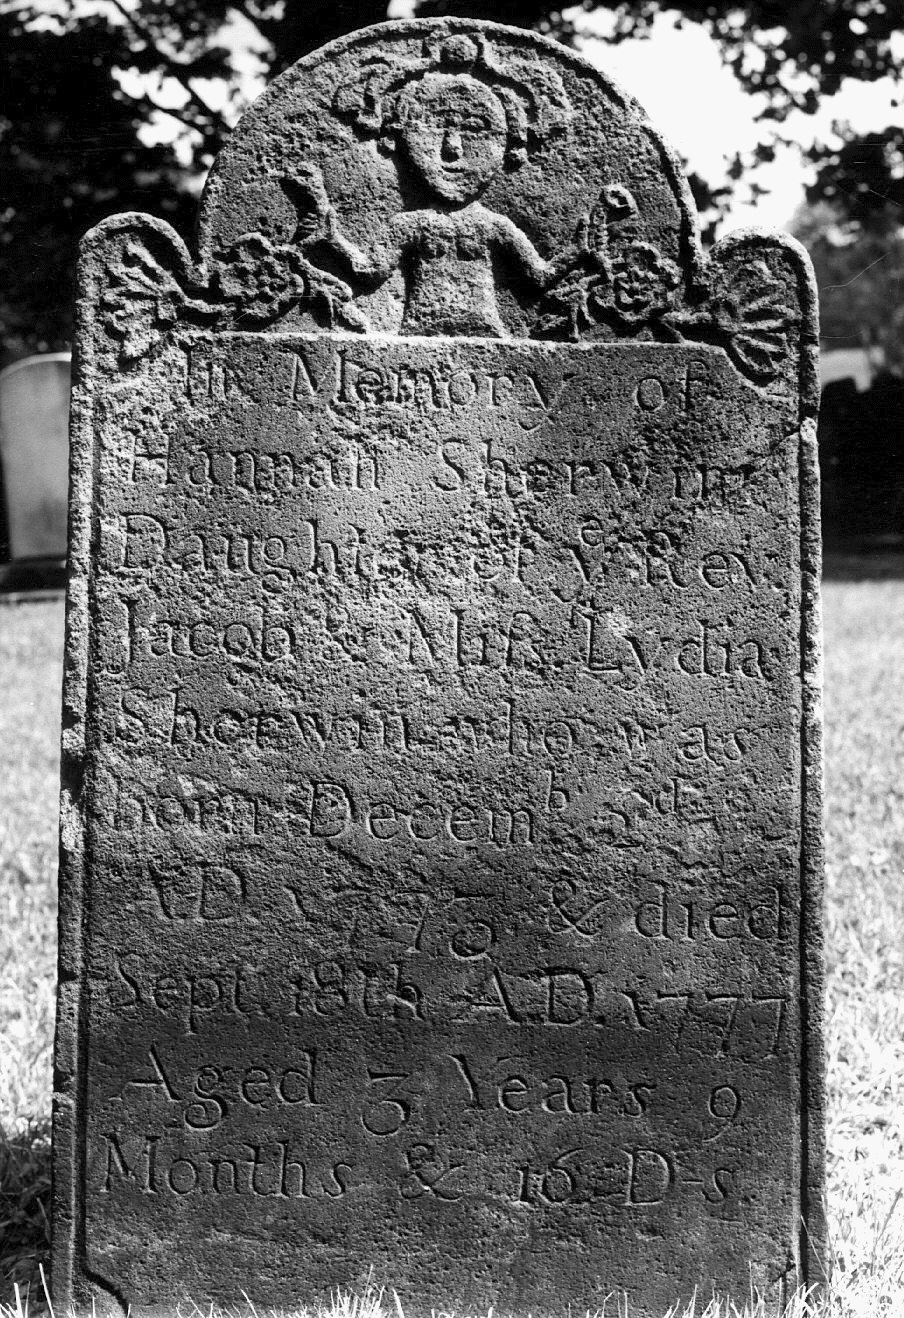 In Memory of
Hannah Sherwin
Daughter of yᵉ Rev
Jacob & Mrs Lydia
Sherwin who was
born Decem b 2d
A.D. 1773 & died
Sept. 18th A.D. 1777
Aged 3 Years 9
Months & 16 D-s